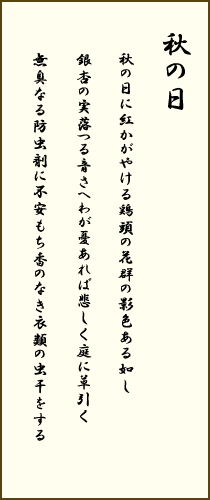 秋の日
秋の日に紅かがやける鶏頭の花群の影色ある如し
銀杏の実落つる音さへわが憂あれば悲しく庭に草引く
無臭なる防虫剤に不安もち香のなき衣類の虫干をする